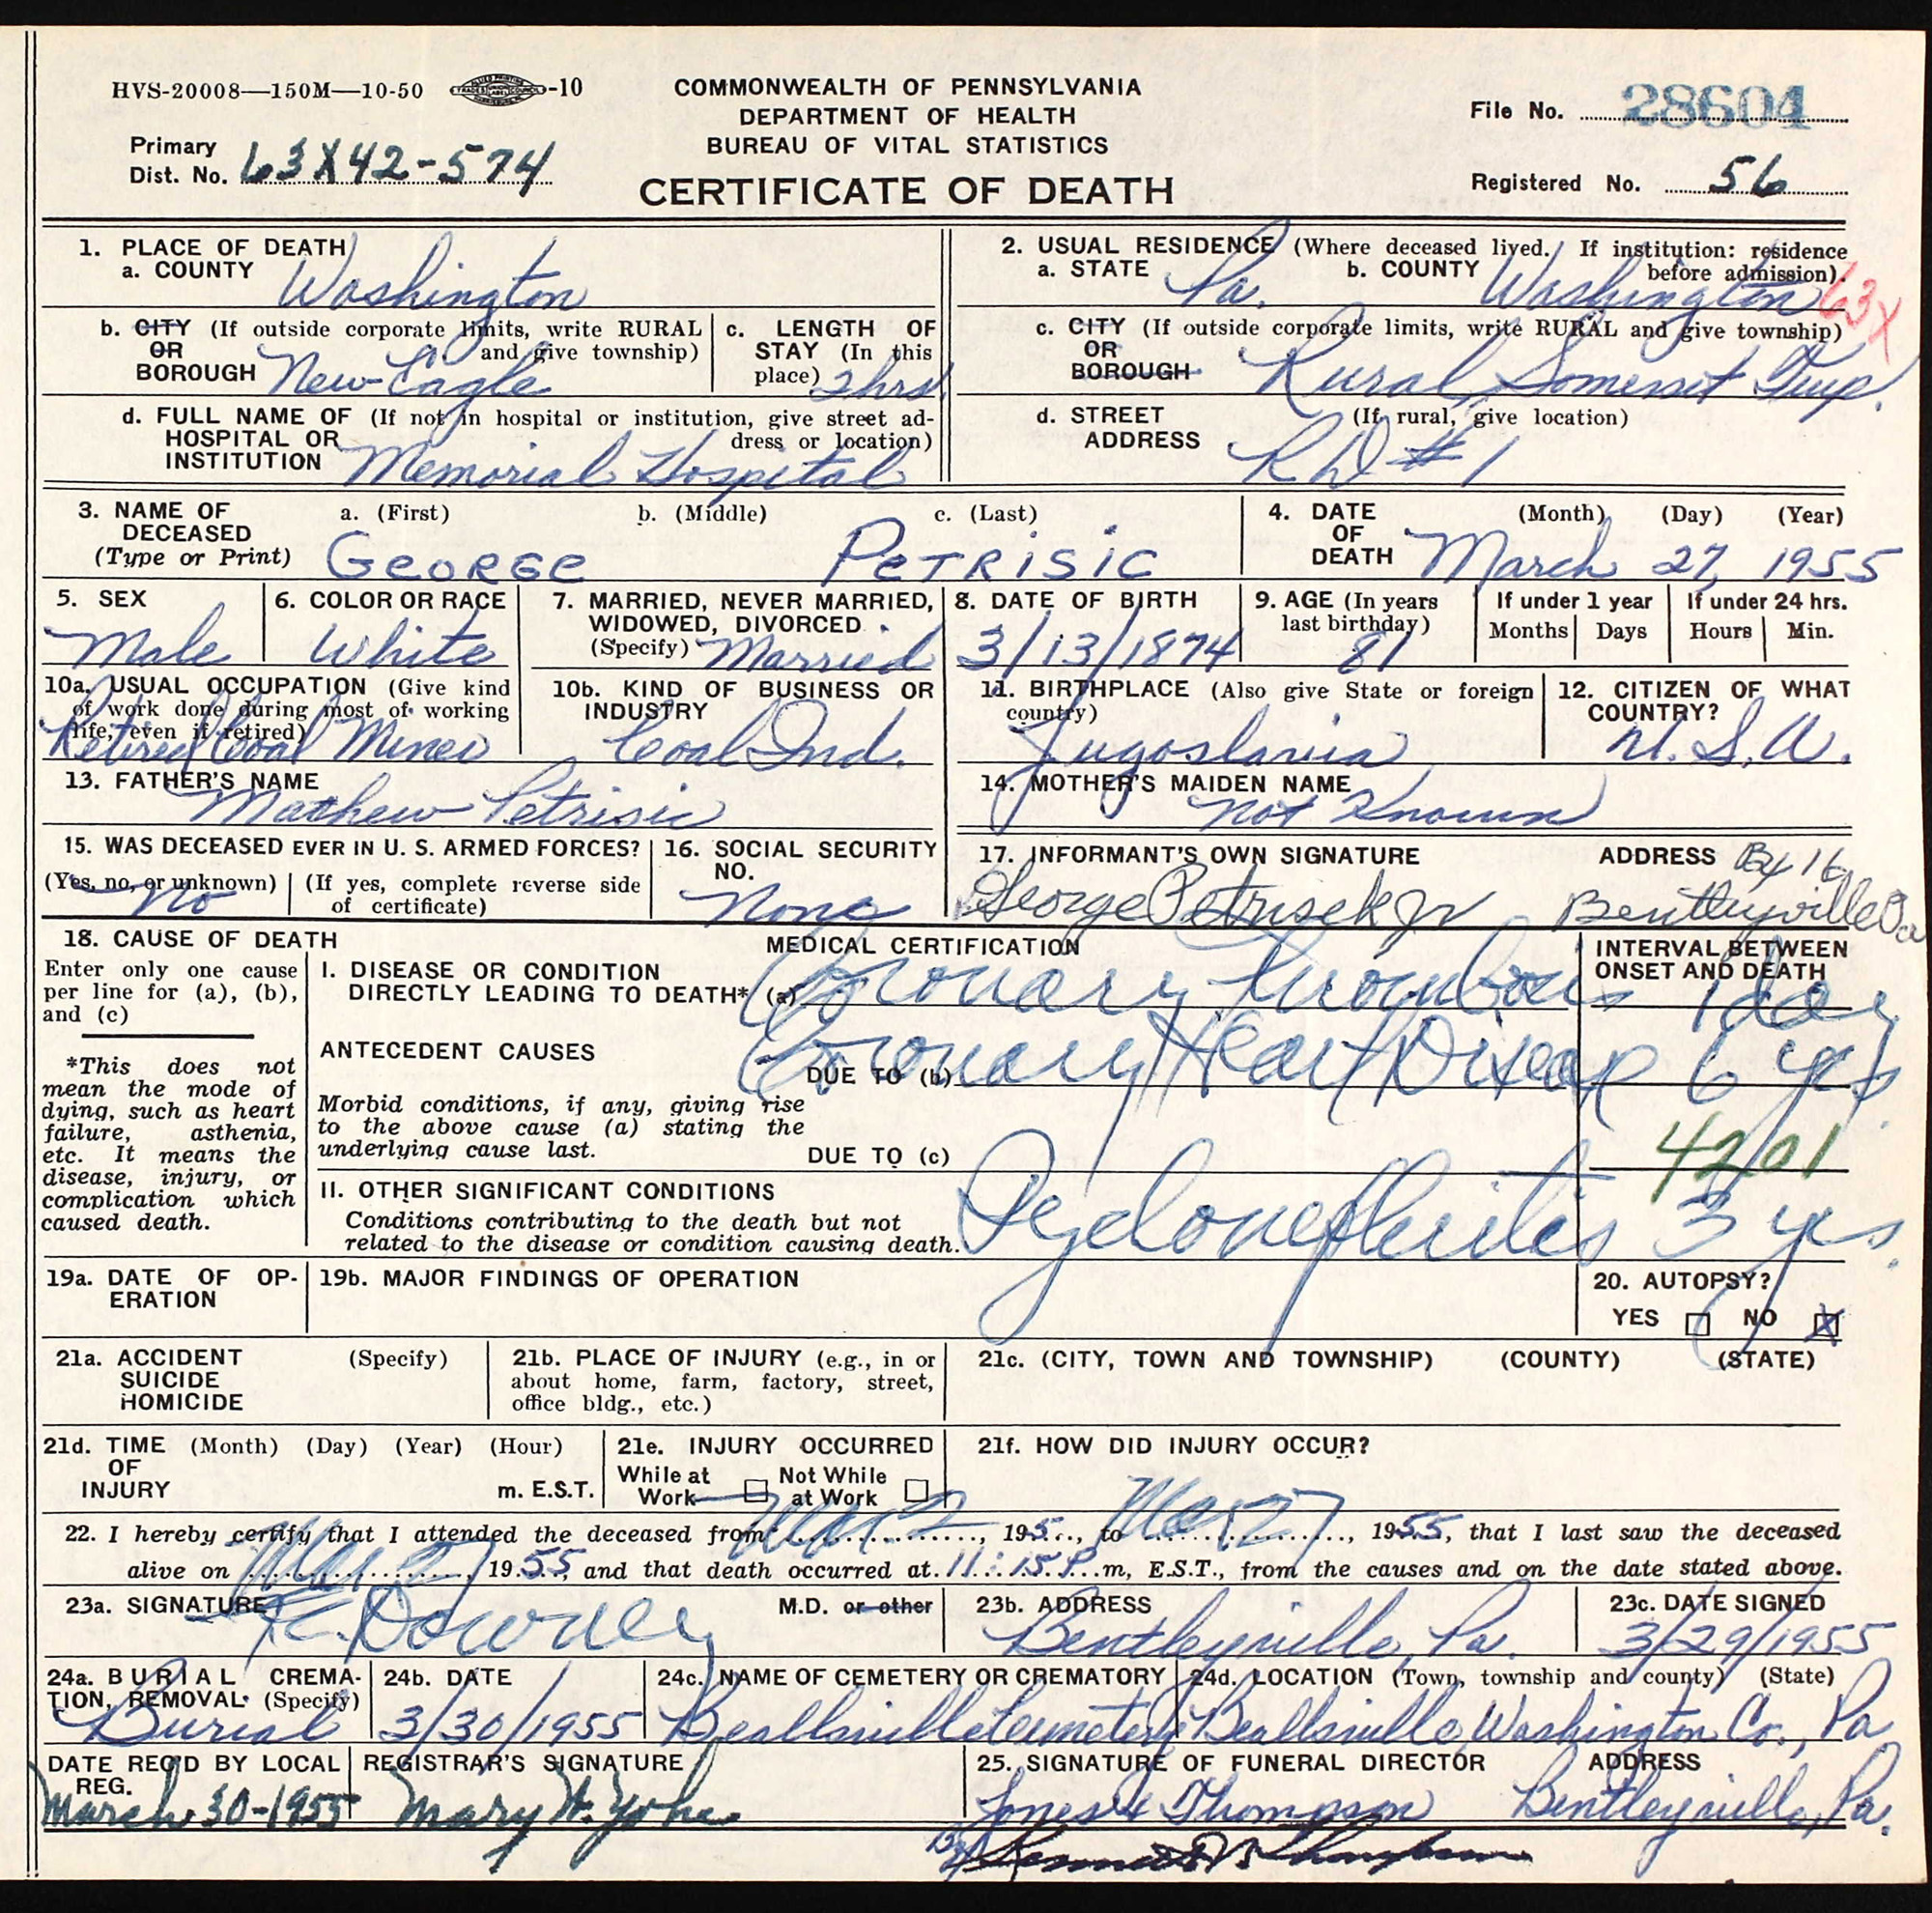 HVS-20008—150M—10-50 -10
COMMONWEALTH OF PENNSYLVANIA
DEPARTMENT OF HEALTH
BUREAU OF VITAL STATISTICS
CERTIFICATE OF DEATH
File No. 28604
Primary
Dist. No. 63X42-574
Registered No. 56
1. PLACE OF DEATH
a. COUNTY Washington
2. USUAL RESIDENCE (Where deceased lived. If institution: residence
before admission).
a. STATE Pa. b. COUNTY Washington 63X
b. CITY (If outside corporate limits, write RURAL
OR and give township)
BOROUGH New Eagle
c. LENGTH OF
STAY (In this
place) 2hrs.
c. CITY (If outside corporate limits, write RURAL and give township)
OR
BOROUGH Rural Somerset Twp.
d. FULL NAME OF (If not in hospital or institution, give street ad-
HOSPITAL OR dress or location)
INSTITUTION Memorial Hospital
d. STREET (If rural, give location)
ADDRESS RD #1
3. NAME OF
DECEASED
(Type or Print)
a. (First) b. (Middle) c. (Last)
GeORGe PeTRiSiC
4. DATE
OF
DEATH
(Month) (Day) (Year)
March 27, 1955
5. SEX
Male
6. COLOR OR RACE
White
7. MARRIED, NEVER MARRIED,
WIDOWED, DIVORCED
(Specify) Married
8. DATE OF BIRTH
3/13/1874
9. AGE (In years
last birthday)
81
If under 1 year
Months Days
If under 24 hrs.
Hours Min.
10a. USUAL OCCUPATION (Give kind
of work done during most of working
life, even if retired)
Retired Coal Miner
10b. KIND OF BUSINESS OR
INDUSTRY
Coal Ind.
11. BIRTHPLACE (Also give State or foreign
country)
Jugoslavia
12. CITIZEN OF WHAT
COUNTRY?
U.S.A.
13. FATHER'S NAME
Mathew Petrisic
14. MOTHER'S MAIDEN NAME
Not Known
15. WAS DECEASED EVER IN U. S. ARMED FORCES?
(Yes, no, or unknown) (If yes, complete reverse side
of certificate)
No
16. SOCIAL SECURITY
NO.
None
17. INFORMANT'S OWN SIGNATURE ADDRESS Bx 16
George Petrisek Jr Bentleyville Pa
18. CAUSE OF DEATH
Enter only one cause
per line for (a), (b),
and (c)
*This does not
mean the mode of
dying, such as heart
failure, asthenia,
etc. It means the
disease, injury, or
complication which
caused death.
MEDICAL CERTIFICATION
I. DISEASE OR CONDITION
DIRECTLY LEADING TO DEATH* (a) Coronary thrombosis
ANTECEDENT CAUSES
DUE TO (b) Coronary Heart Disease
Morbid conditions, if any, giving rise
to the above cause (a) stating the
underlying cause last.
DUE TO (c)
II. OTHER SIGNIFICANT CONDITIONS
Conditions contributing to the death but not
related to the disease or condition causing death.
Pyelonephritis
INTERVAL BETWEEN
ONSET AND DEATH
1 day
6 yrs
4201
3 yrs.
19a. DATE OF OP-
ERATION
19b. MAJOR FINDINGS OF OPERATION
20. AUTOPSY?
YES NO X
21a. ACCIDENT (Specify)
SUICIDE
HOMICIDE
21b. PLACE OF INJURY (e.g., in or
about home, farm, factory, street,
office bldg., etc.)
21c. (CITY, TOWN AND TOWNSHIP) (COUNTY) (STATE)
21d. TIME (Month) (Day) (Year) (Hour)
OF
INJURY m. E.S.T.
21e. INJURY OCCURRED
While at Not While
Work at Work
21f. HOW DID INJURY OCCUR?
22. I hereby certify that I attended the deceased from Mar 2, 195, to Mar 27, 1955, that I last saw the deceased
alive on Mar 27, 1955, and that death occurred at 11:15 P m, E.S.T., from the causes and on the date stated above.
23a. SIGNATURE Downey M.D. or other
23b. ADDRESS
Bentleyville, Pa.
23c. DATE SIGNED
3/29/1955
24a. BURIAL CREMA-
TION, REMOVAL (Specify)
Burial
24b. DATE
3/30/1955
24c. NAME OF CEMETERY OR CREMATORY
Beallsville Cemetery
24d. LOCATION (Town, township and county) (State)
Beallsville, Washington Co., Pa
DATE REC'D BY LOCAL
REG.
March 30-1955
REGISTRAR'S SIGNATURE
Mary H. Yohe
25. SIGNATURE OF FUNERAL DIRECTOR ADDRESS
Jones & Thompson Bentleyville, Pa.
By Thompson